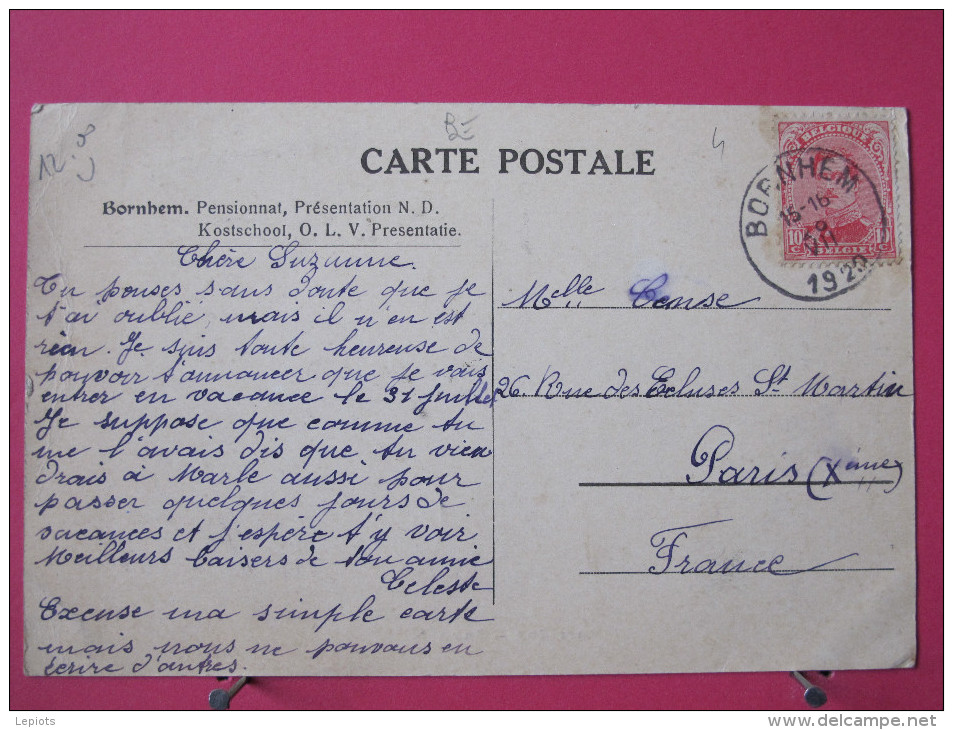 CARTE POSTALE
Bornhem. Pensionnat, Présentation N. D.
Kostschool, O. L. V. Presentatie.
Chère Suzanne.
Tu penses sans doute que je
t'ai oublié, mais il n'en est
rien. Je suis toute heureuse de
pouvoir t'annoncer que je vais
entrer en vacance le 31 juillet
Je suppose que comme tu
me l'avais dis que tu vien
drais à Marle aussi pour
passer quelques jours de
vacances et j'espère t'y voir
Meilleurs baisers de ton amie
Celeste
Excuse ma simple carte
mais nous ne pouvons en
écrire d'autres.
BELGIQUE
10 C
BELGIË
BORNHEM
15-16
VII
1920
Melle Cense
26. Rue des Ecluses St Martin
Paris (Xème)
France
12
4
Lepiots
www.delcampe.net